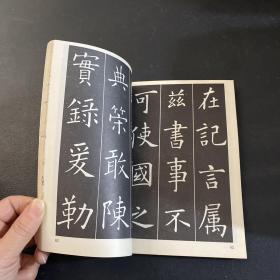 在記言属
茲書事不
可使國之
典策敢陳
實錄爰勒